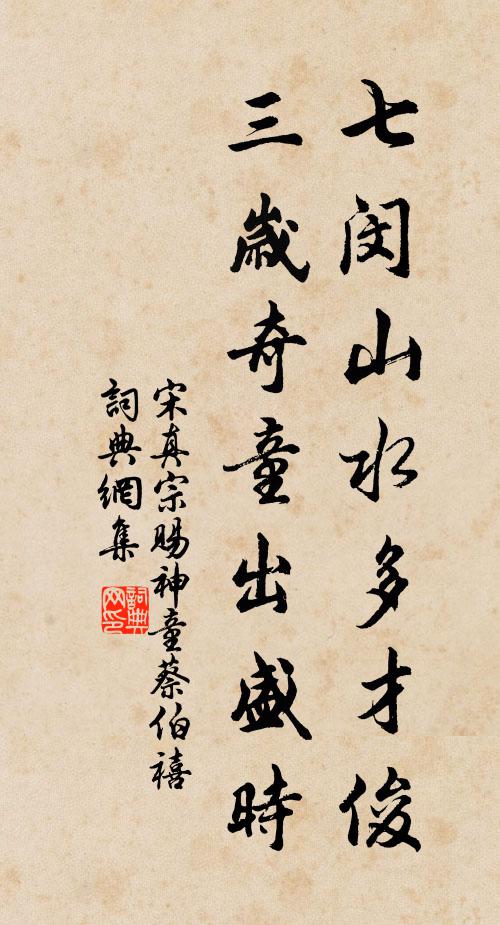 七閔山水多才俊
三歲奇童出盛時
宋真宗賜神童蔡伯禧
詞典網集
詞典网印